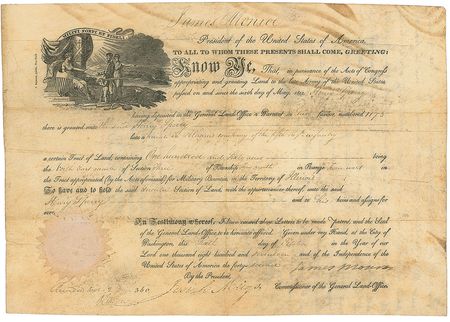 James Monroe
President of the United States of America,
TO ALL TO WHOM THESE PRESENTS SHALL COME, GREETING:
Know Ye, That, in pursuance of the Acts of Congress
appropriating and granting Land to the late Army of the United States
passed on and since the sixth day of May, 1812, Henry
having deposited in the General Land-Office a Warrant in his favour numbered
there is granted unto the said Henry
late a private in company of the fifth regiment infantry
a certain Tract of Land, containing One hundred and sixty acres being
the North east quarter of Section of Township north in Range west in
the Tract appropriated (by the Acts aforesaid) for Military Bounties, in the Territory of Illinois
To have and to hold the said quarter Section of Land, with the appurtenances thereof, unto the said
Henry and to his heirs and assigns for
ever.
In Testimony whereof, I have caused these Letters to be made Patent, and the Seal
of the General Land-Office to be hereunto affixed. Given under my Hand, at the City of
Washington, this day of in the Year of our
Lord one thousand eight hundred and seventeen and of the Independence of the
United States of America the forty second
By the President, James Monroe
Josiah Meigs Commissioner of the General Land-Office.